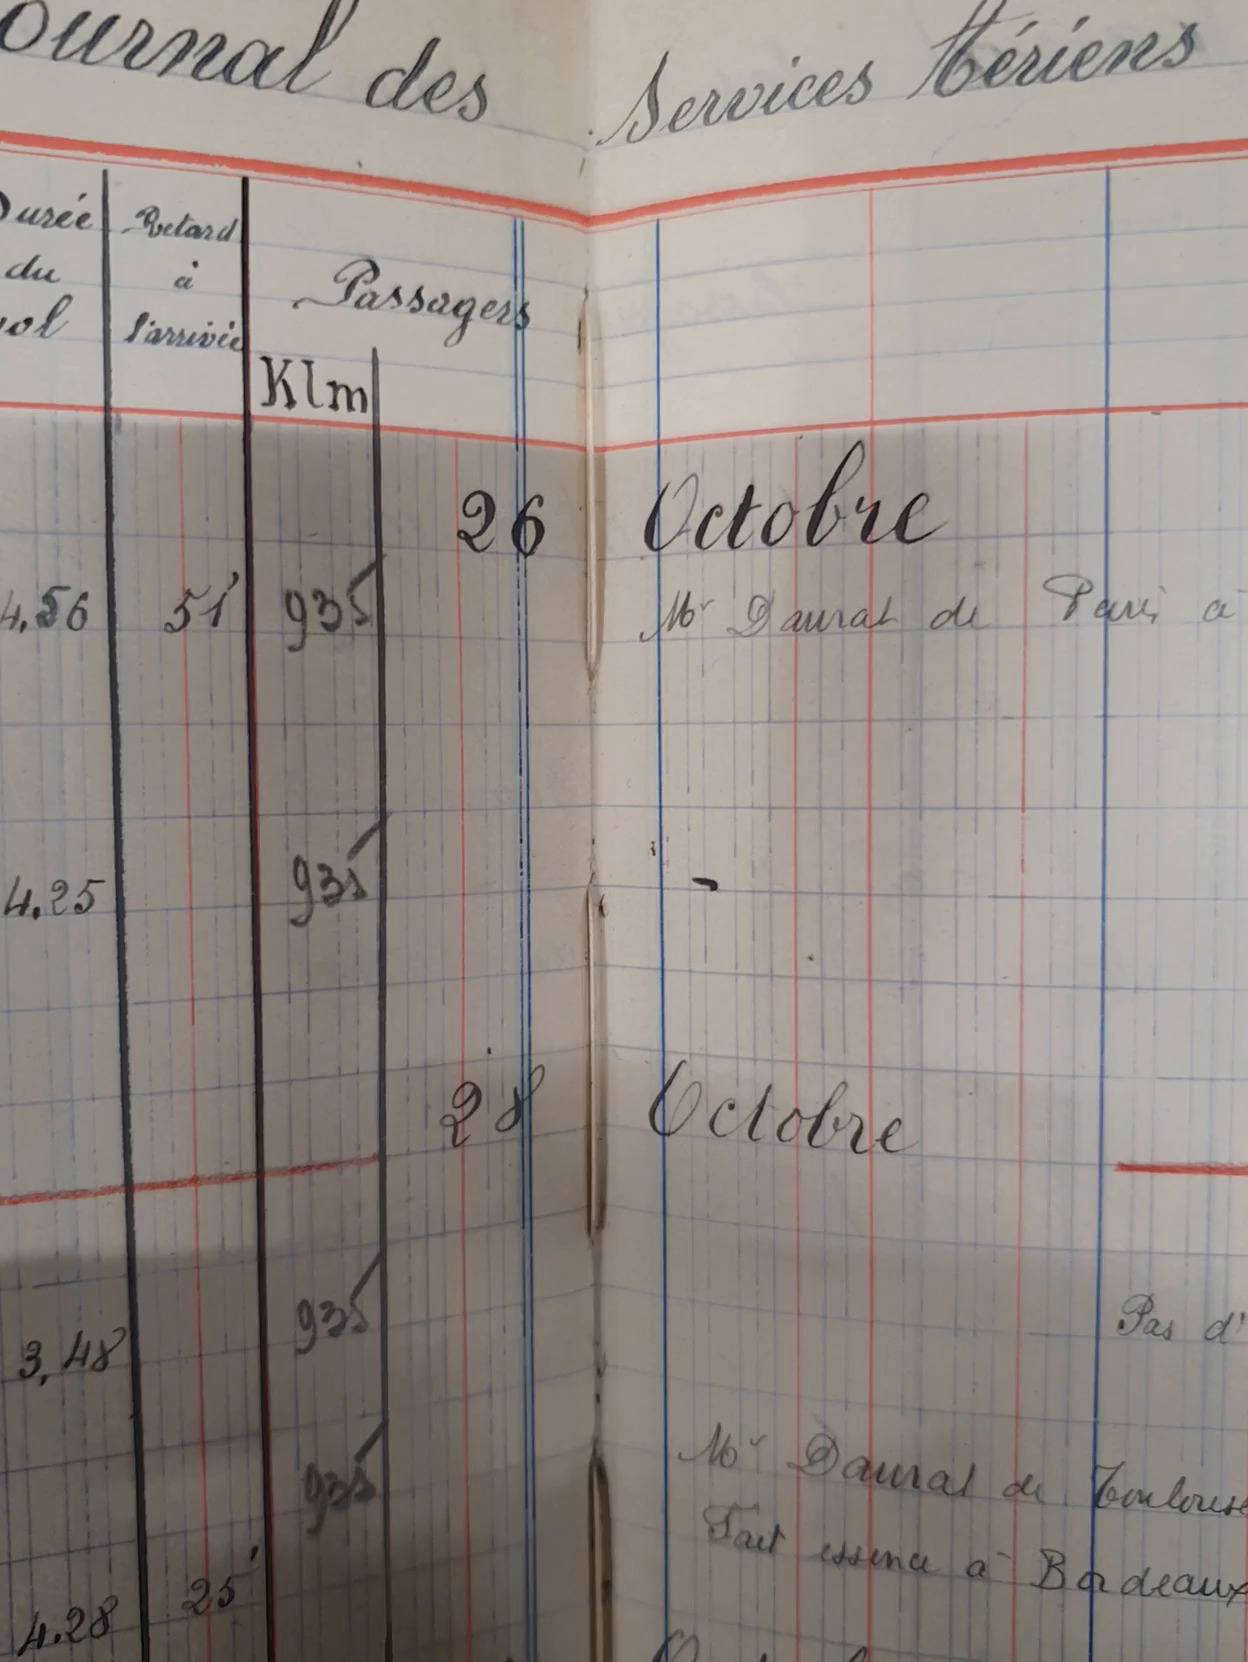 ournal des Services Aériens
Durée
du
vol
Retard
à
l'arrivée
Passagers
Klm
26 Octobre
4.56 51' 935 Mr Daurat de Paris à
4.25 935 -
28 Octobre
3,48 935 Pas d'
935 Mr Daurat de Toulouse
Fait essence à Bordeaux
4.28 25'